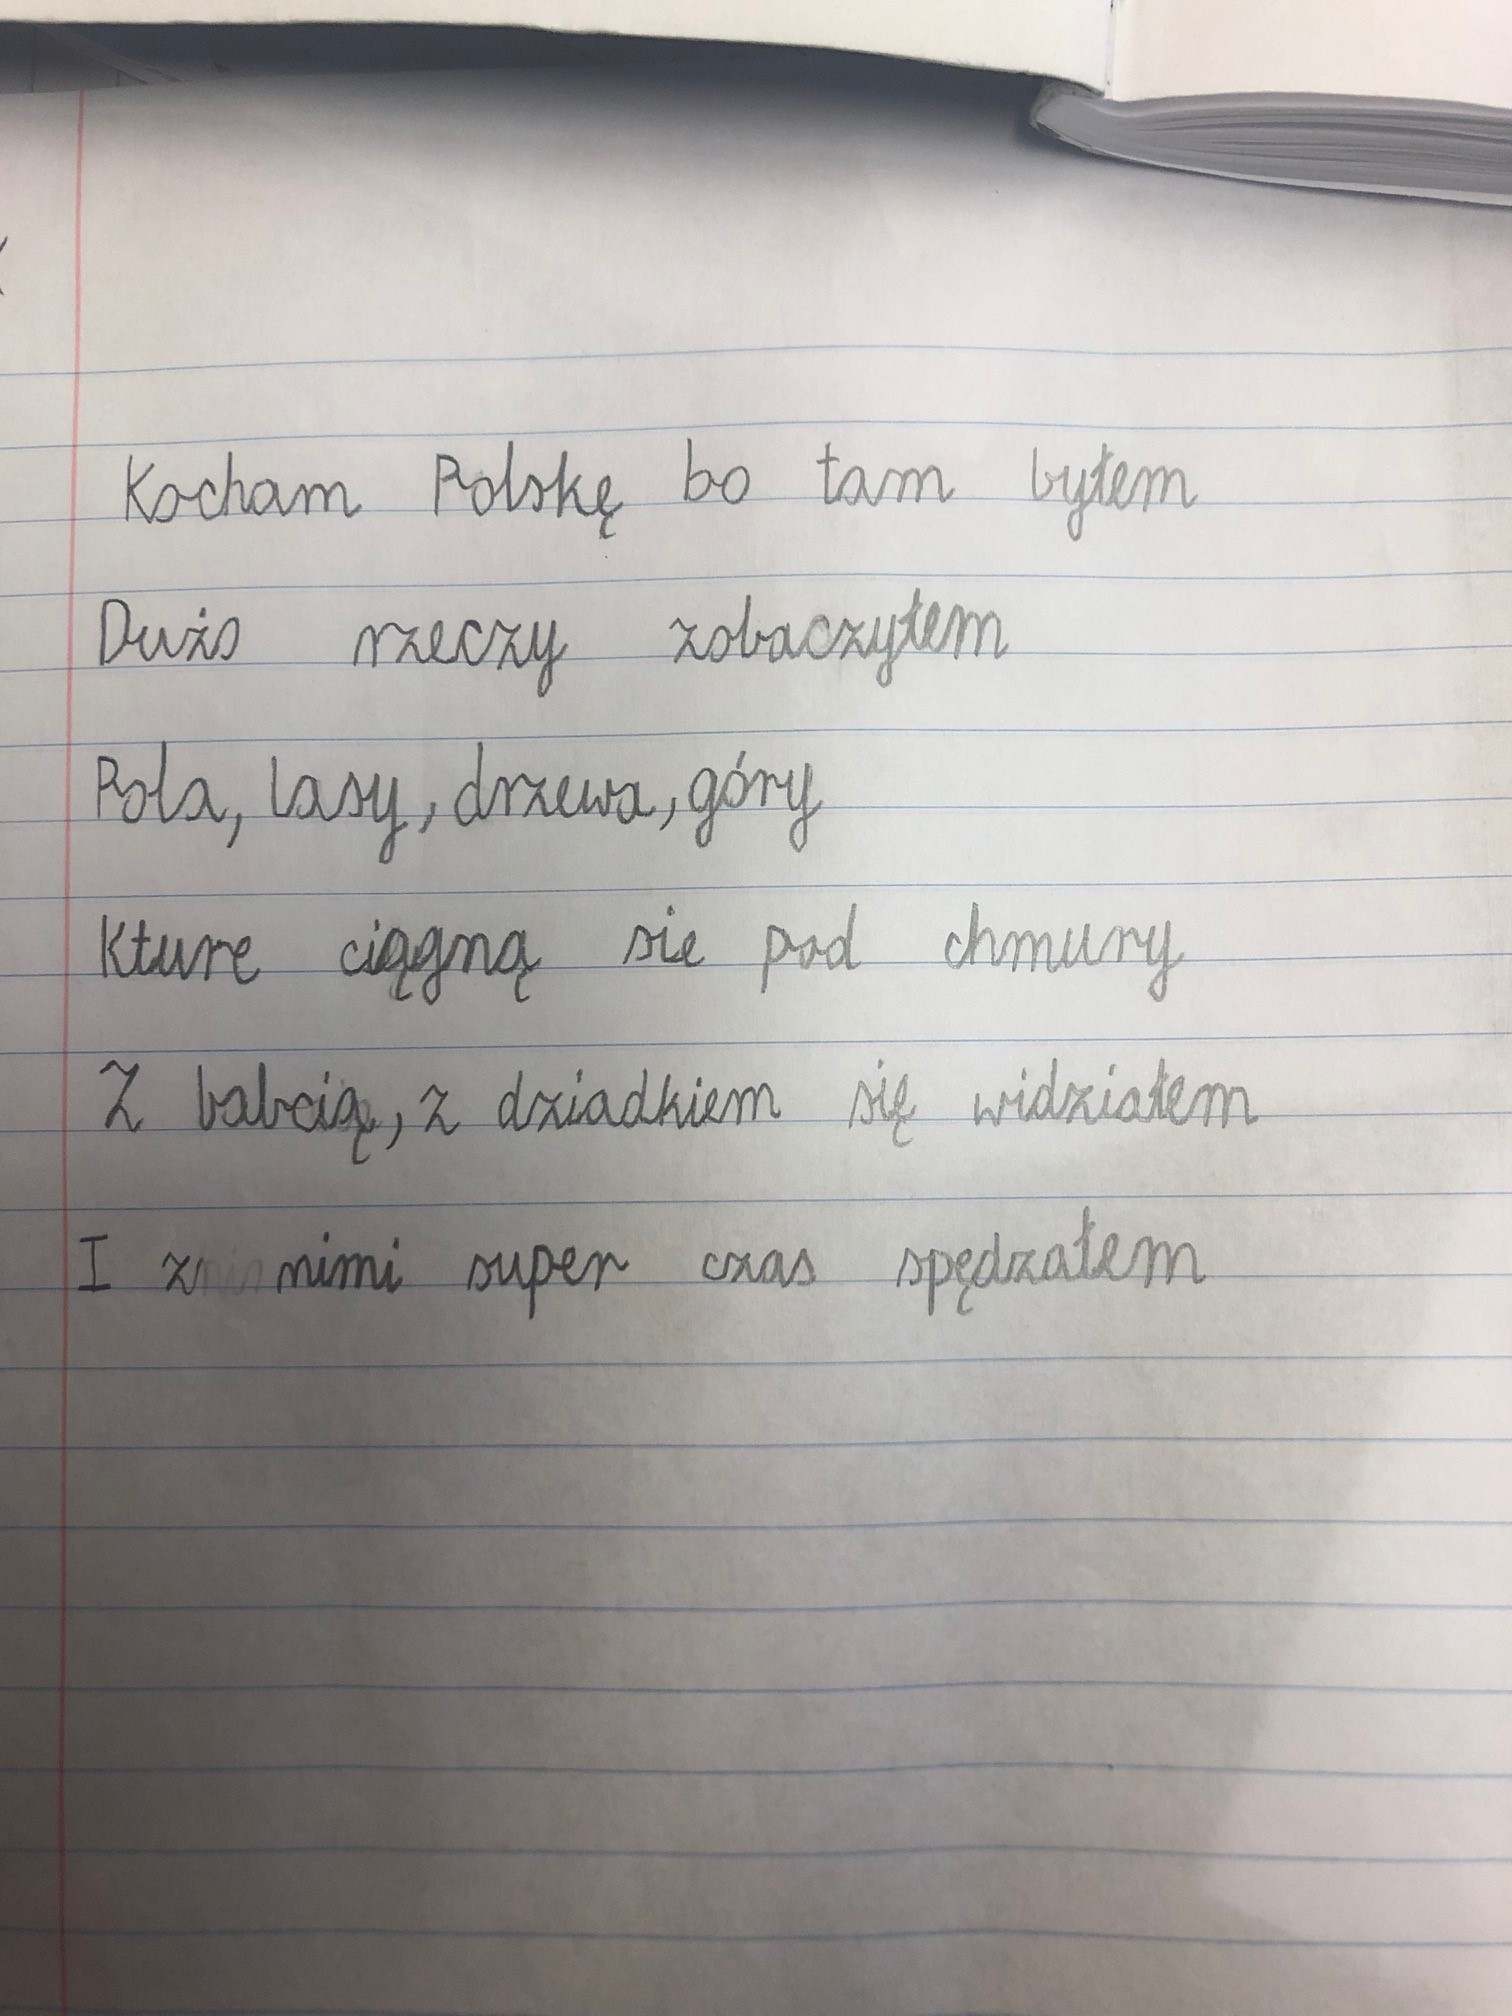 Kocham Polskę bo tam byłem
Dużo rzeczy zobaczyłem
Pola, lasy, drzewa, góry
Kture ciągną sie pod chmury
Z babcią, z dziadkiem się widziałem
I z nimi super czas spędzałem